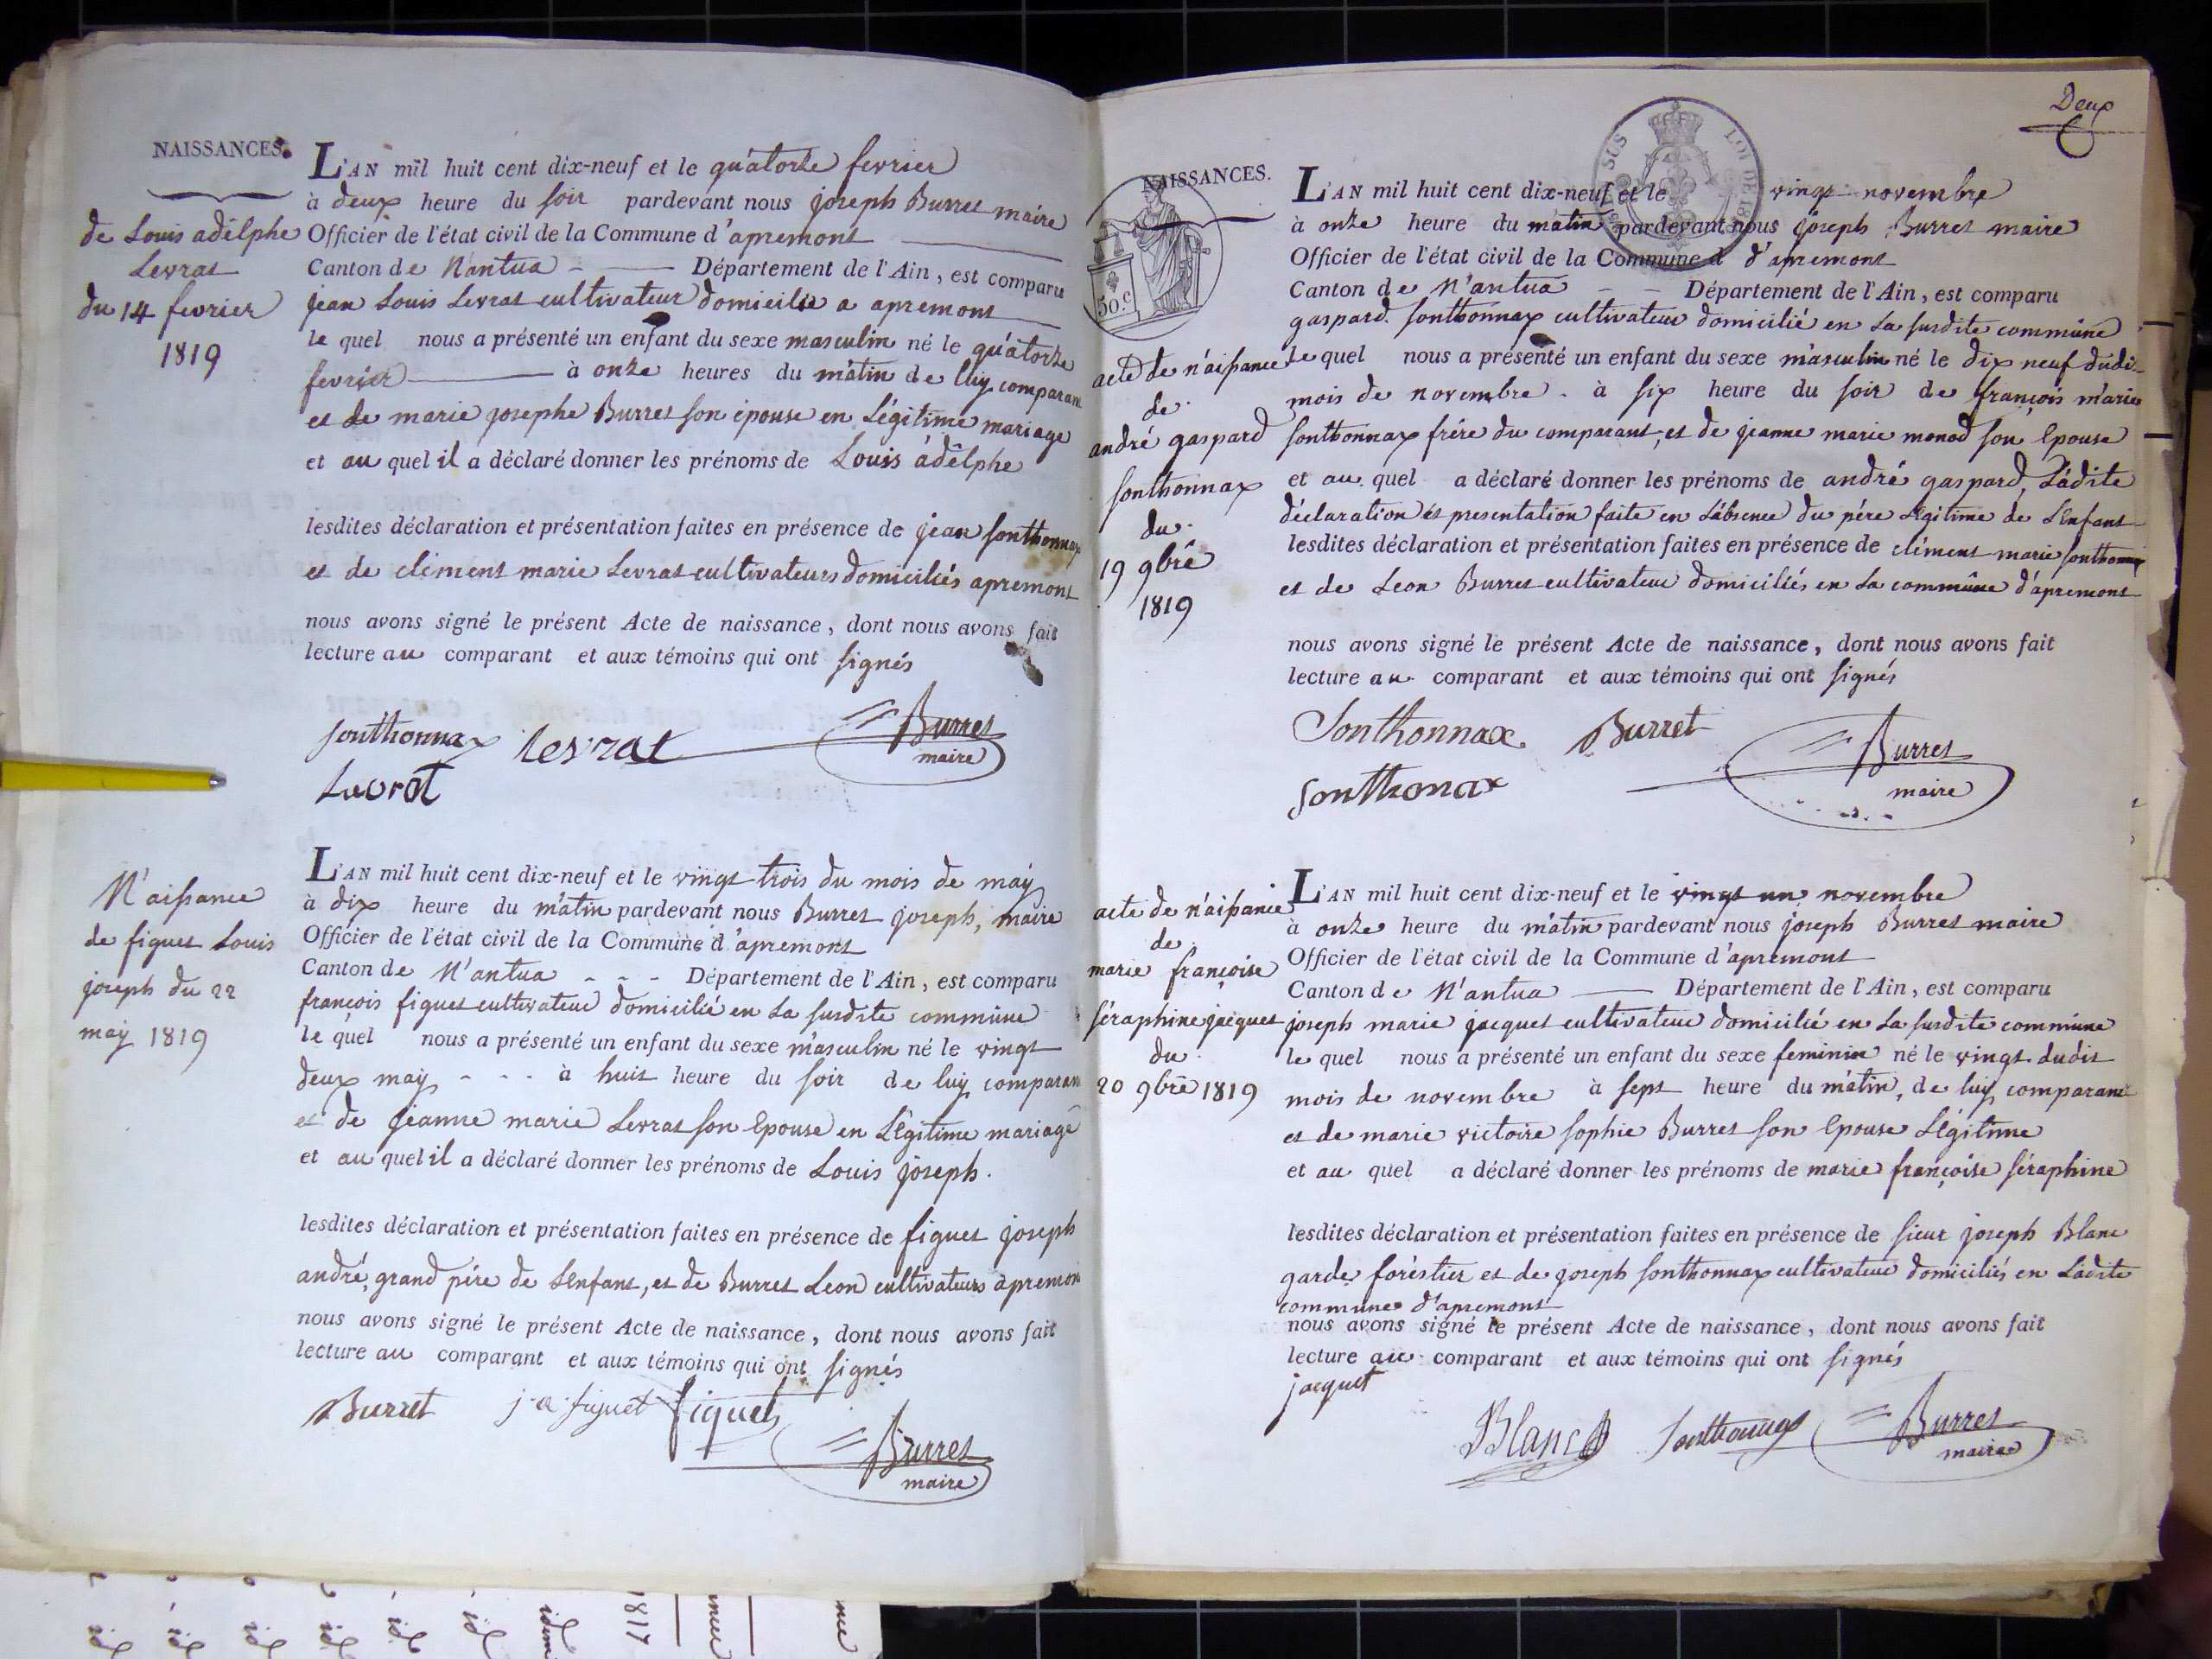 NAISSANCES.
de Louis adélphe
Levrat
du 14 fevrier
1819
L'AN mil huit cent dix-neuf et le quatorze fevrier
à deux heure du soir pardevant nous joseph Burret maire
Officier de l'état civil de la Commune d'apremont
Canton de Nantua - Département de l'Ain, est comparu
jean Louis Levrat cultivateur domicilié a apremont
le quel nous a présenté un enfant du sexe masculin né le quatorze
fevrier à onze heures du matin de luy comparant
et de marie josephe Burret son épouse en Légitime mariage
et au quel il a déclaré donner les prénoms de Louis adélphe
lesdites déclaration et présentation faites en présence de jean sonthonnax
et de clément marie Levrat cultivateurs domiciliés apremont
nous avons signé le présent Acte de naissance, dont nous avons fait
lecture au comparant et aux témoins qui ont signés
sonthonnax levrat Burret
maire
Levrat
N'aissance
de figuet Louis
joseph du 22
may 1819
L'AN mil huit cent dix-neuf et le vingt trois du mois de may
à dix heure du matin pardevant nous Burret joseph, maire
Officier de l'état civil de la Commune d'apremont
Canton de N'antua - - - Département de l'Ain, est comparu
françois figuet cultivateur domicilié en La susdite commune
le quel nous a présenté un enfant du sexe masculin né le vingt
deux may - - - à huit heure du soir de luy comparant
et de jeanne marie Levrat son Epouse en Légitime mariage
et au quel il a déclaré donner les prénoms de Louis joseph.
lesdites déclaration et présentation faites en présence de figuet joseph
andré, grand père de L'enfant, et de Burret Leon cultivateurs apremont
nous avons signé le présent Acte de naissance, dont nous avons fait
lecture au comparant et aux témoins qui ont signés
Burret j-a-figuet figuet
Burret
maire
Deux
NAISSANCES.
50.c
SUS LOI DE 18
acte de n'aissance
de
andré gaspard
sonthonnax
du
19 9bre
1819
L'AN mil huit cent dix-neuf et le vingt novembre
à onze heure du matin pardevant nous joseph Burret maire
Officier de l'état civil de la Commune d d'apremont
Canton de N'antua - - Département de l'Ain, est comparu
gaspard sonthonnax cultivateur domicilié en La susdite commune
le quel nous a présenté un enfant du sexe masculin né le dix neuf dudit
mois de novembre - à six heure du soir de françois marie
sonthonnax frére du comparant, et de jeanne marie monod son Epouse
et au quel a déclaré donner les prénoms de andré gaspard, Ladite
déclaration et presentation faite en L'absence du père Légitime de L'Enfant
lesdites déclaration et présentation faites en présence de clément marie sonthonnax
et de Leon Burret cultivateur domiciliés en La commune d'apremont
nous avons signé le présent Acte de naissance, dont nous avons fait
lecture au comparant et aux témoins qui ont signés
Sonthonnax Burret
Burret
maire
sonthonax
acte de n'aissance
de
marie françoise
séraphine jacquet
du
20 9bre 1819
L'AN mil huit cent dix-neuf et le vingt un novembre
à onze heure du matin pardevant nous joseph Burret maire
Officier de l'état civil de la Commune d'apremont
Canton de N'antua Département de l'Ain, est comparu
joseph marie jacquet cultivateur domicilié en La susdite commune
le quel nous a présenté un enfant du sexe feminin né le vingt dudit
mois de novembre à sept heure du matin, de luy comparant
et de marie victoire sophie Burret son Epouse Légitime
et au quel a déclaré donner les prénoms de marie françoise séraphine
lesdites déclaration et présentation faites en présence de sieur joseph Blanc
garde foréstier et de joseph sonthonnax cultivateur domiciliés en Ladite
commune d'apremont
nous avons signé le présent Acte de naissance, dont nous avons fait
lecture au comparant et aux témoins qui ont signés
jacquet
Blanc Sonthonnax Burret
maire
1817